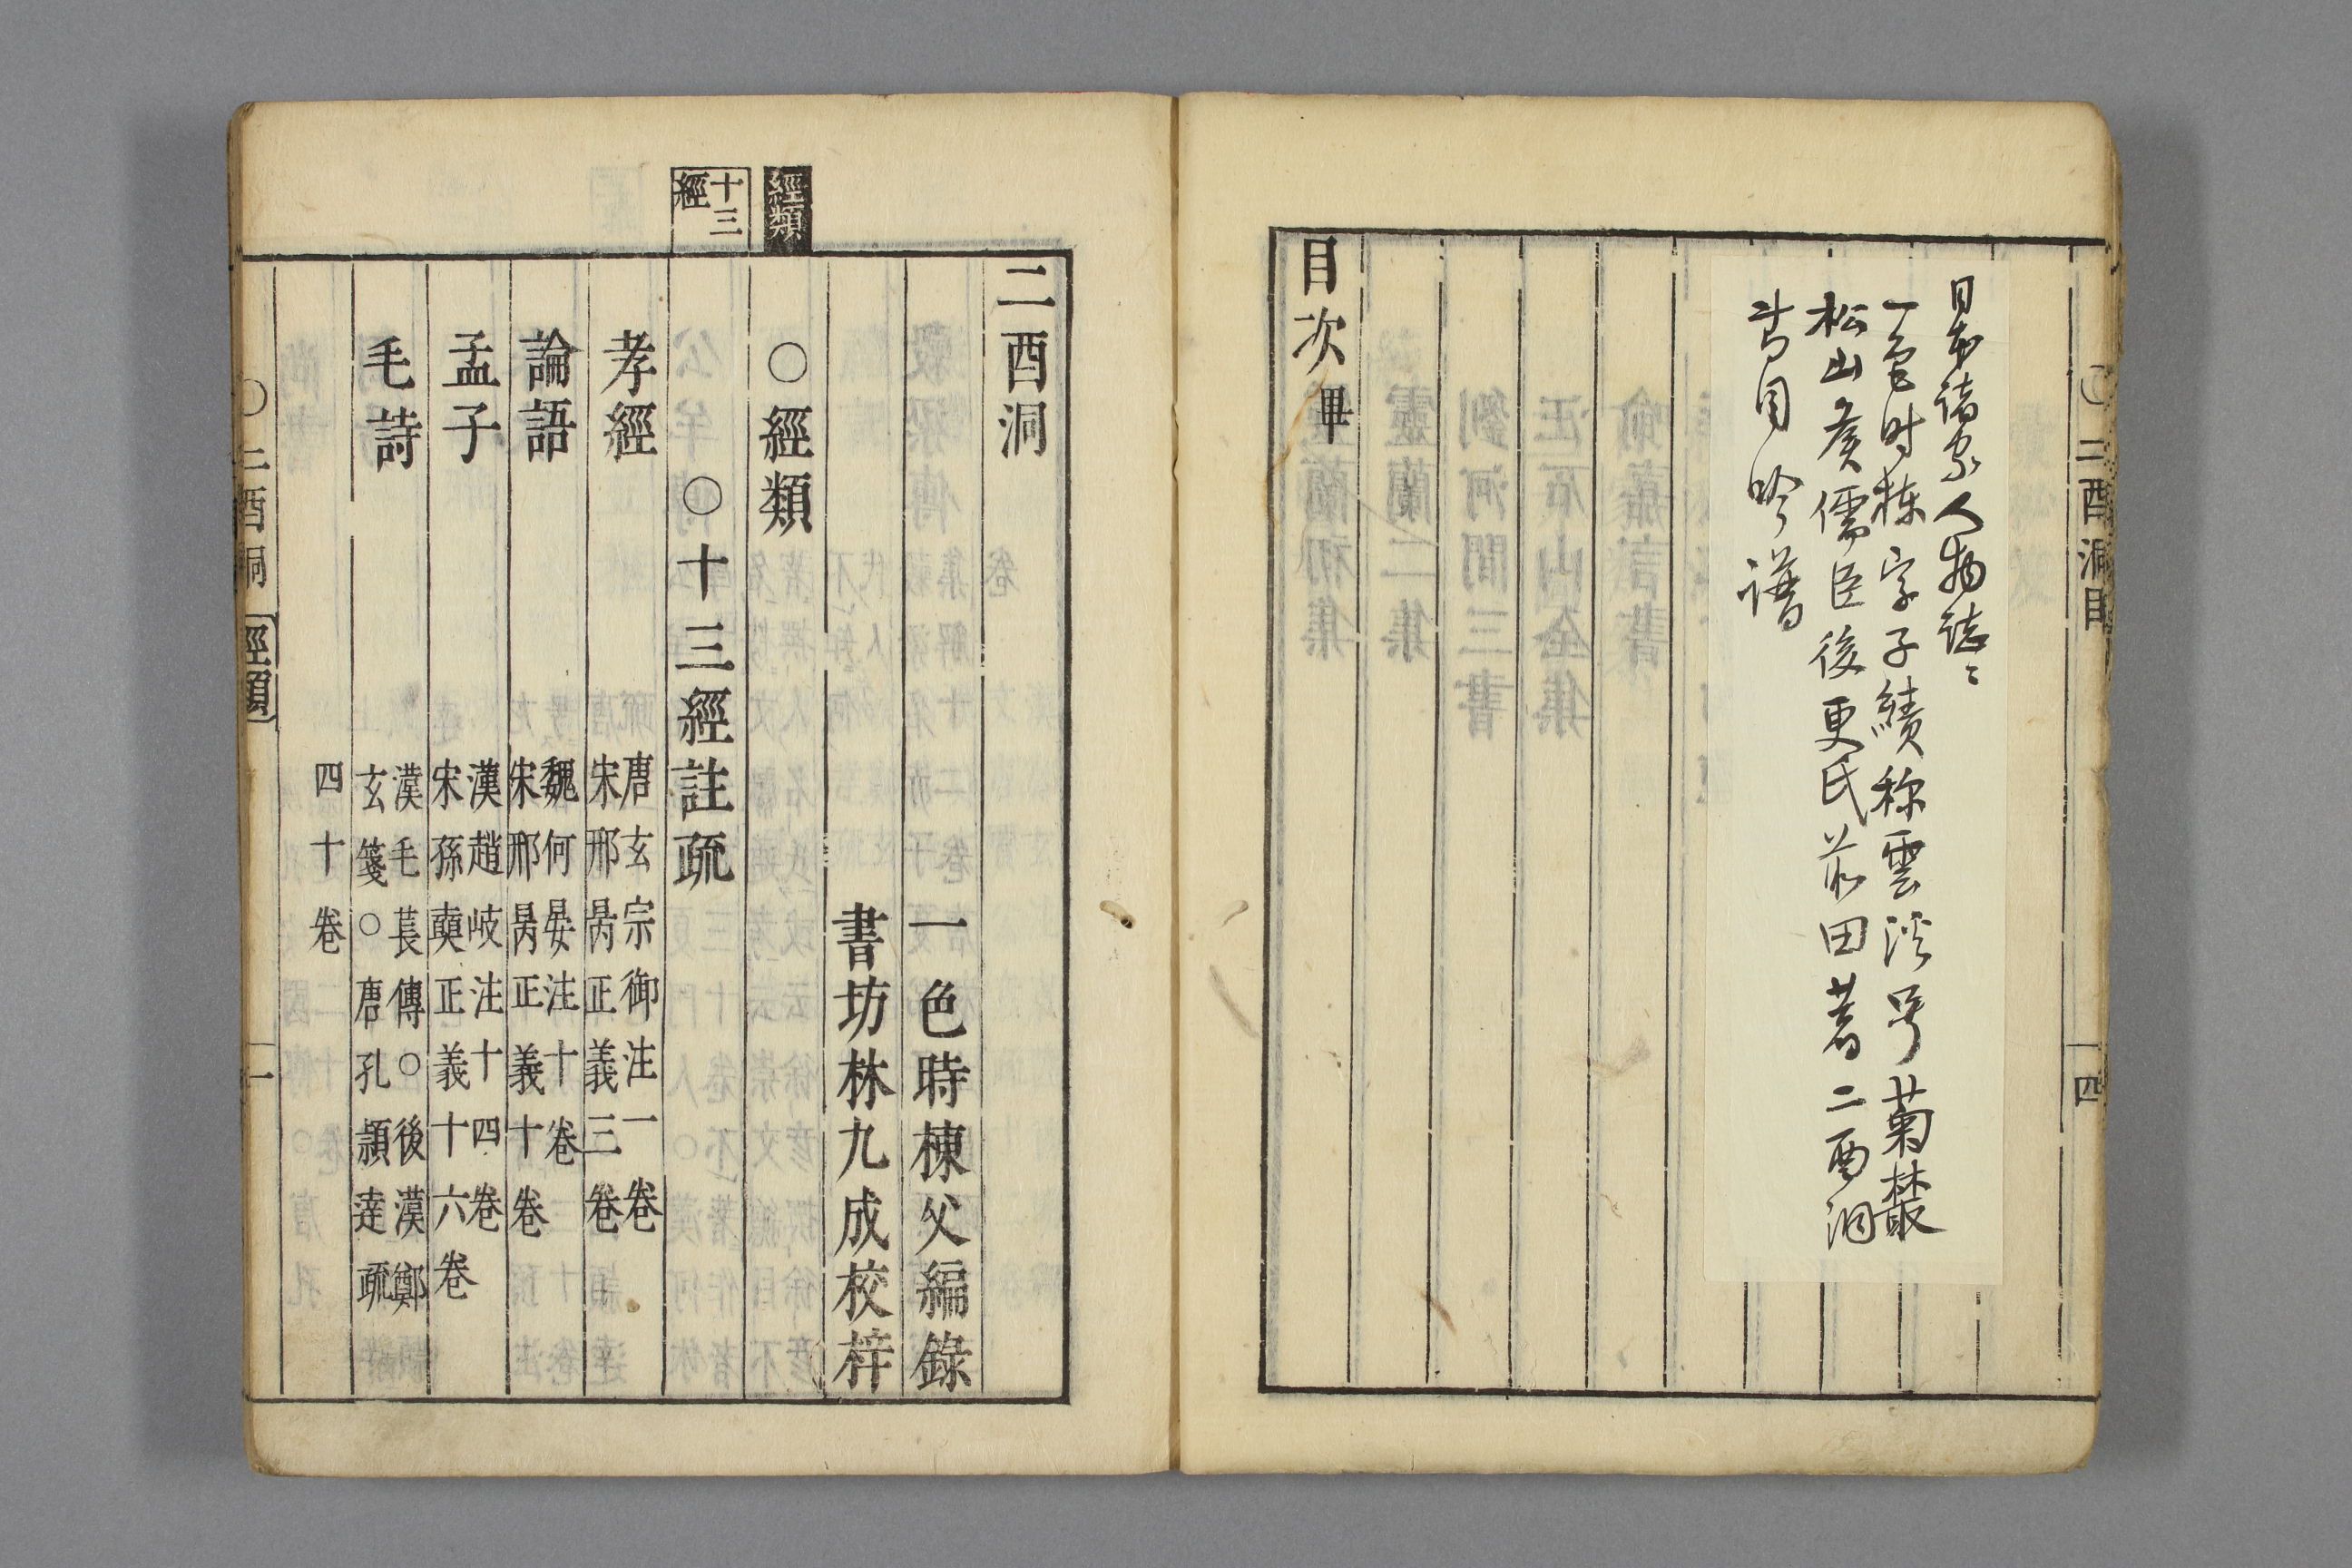 ○二酉洞目
四
日本諸家人物誌ニ
一色时棟字子績称雲溪号菊叢
松山矦儒臣後更氏前田著二酉洞
昔目吟譜
目次畢
二酉洞
一色時棟父編錄
書坊林九成校梓
經類
○經類
十三經
○十三經註疏
孝經 唐玄宗御注一卷
宋邢昺正義三卷
論語 魏何晏注十卷
宋邢昺正義十卷
孟子 漢趙岐注十四卷
宋孫奭正義十六卷
毛詩 漢毛萇傳○後漢鄭
玄箋○唐孔頴達疏
四十卷
○二酉洞 經類
一